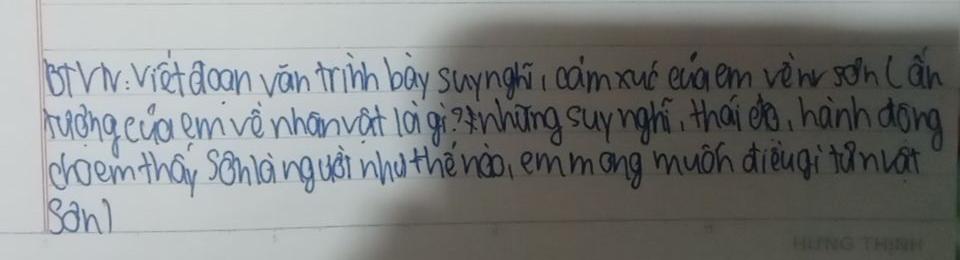 BTVN: Viết đoạn văn trình bày suy nghĩ, cảm xúc của em về nv sơn (ấn
tượng của em về nhân vật là gì? những suy nghĩ, thái độ, hành động
cho em thấy Sơn là người như thế nào, em mong muốn điều gì từ n vật
Sơn)
HƯNG THỊNH